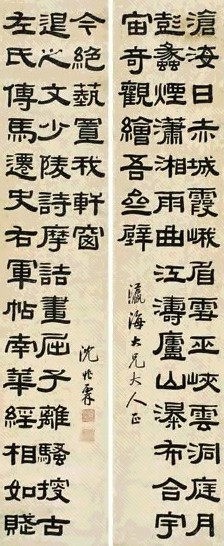 滄海日赤城霞峨眉雪巫峽雲洞庭月
彭蠡煙瀟湘雨曲江濤廬山瀑布合宇
宙奇觀繪吾亝壁
瀛海大兄大人正
左氏傳馬遷史右軍帖南華經相如賦
退之文少陵詩摩詰畫屈子離騷搜古
今絕藝置我軒窗
沈兆霖